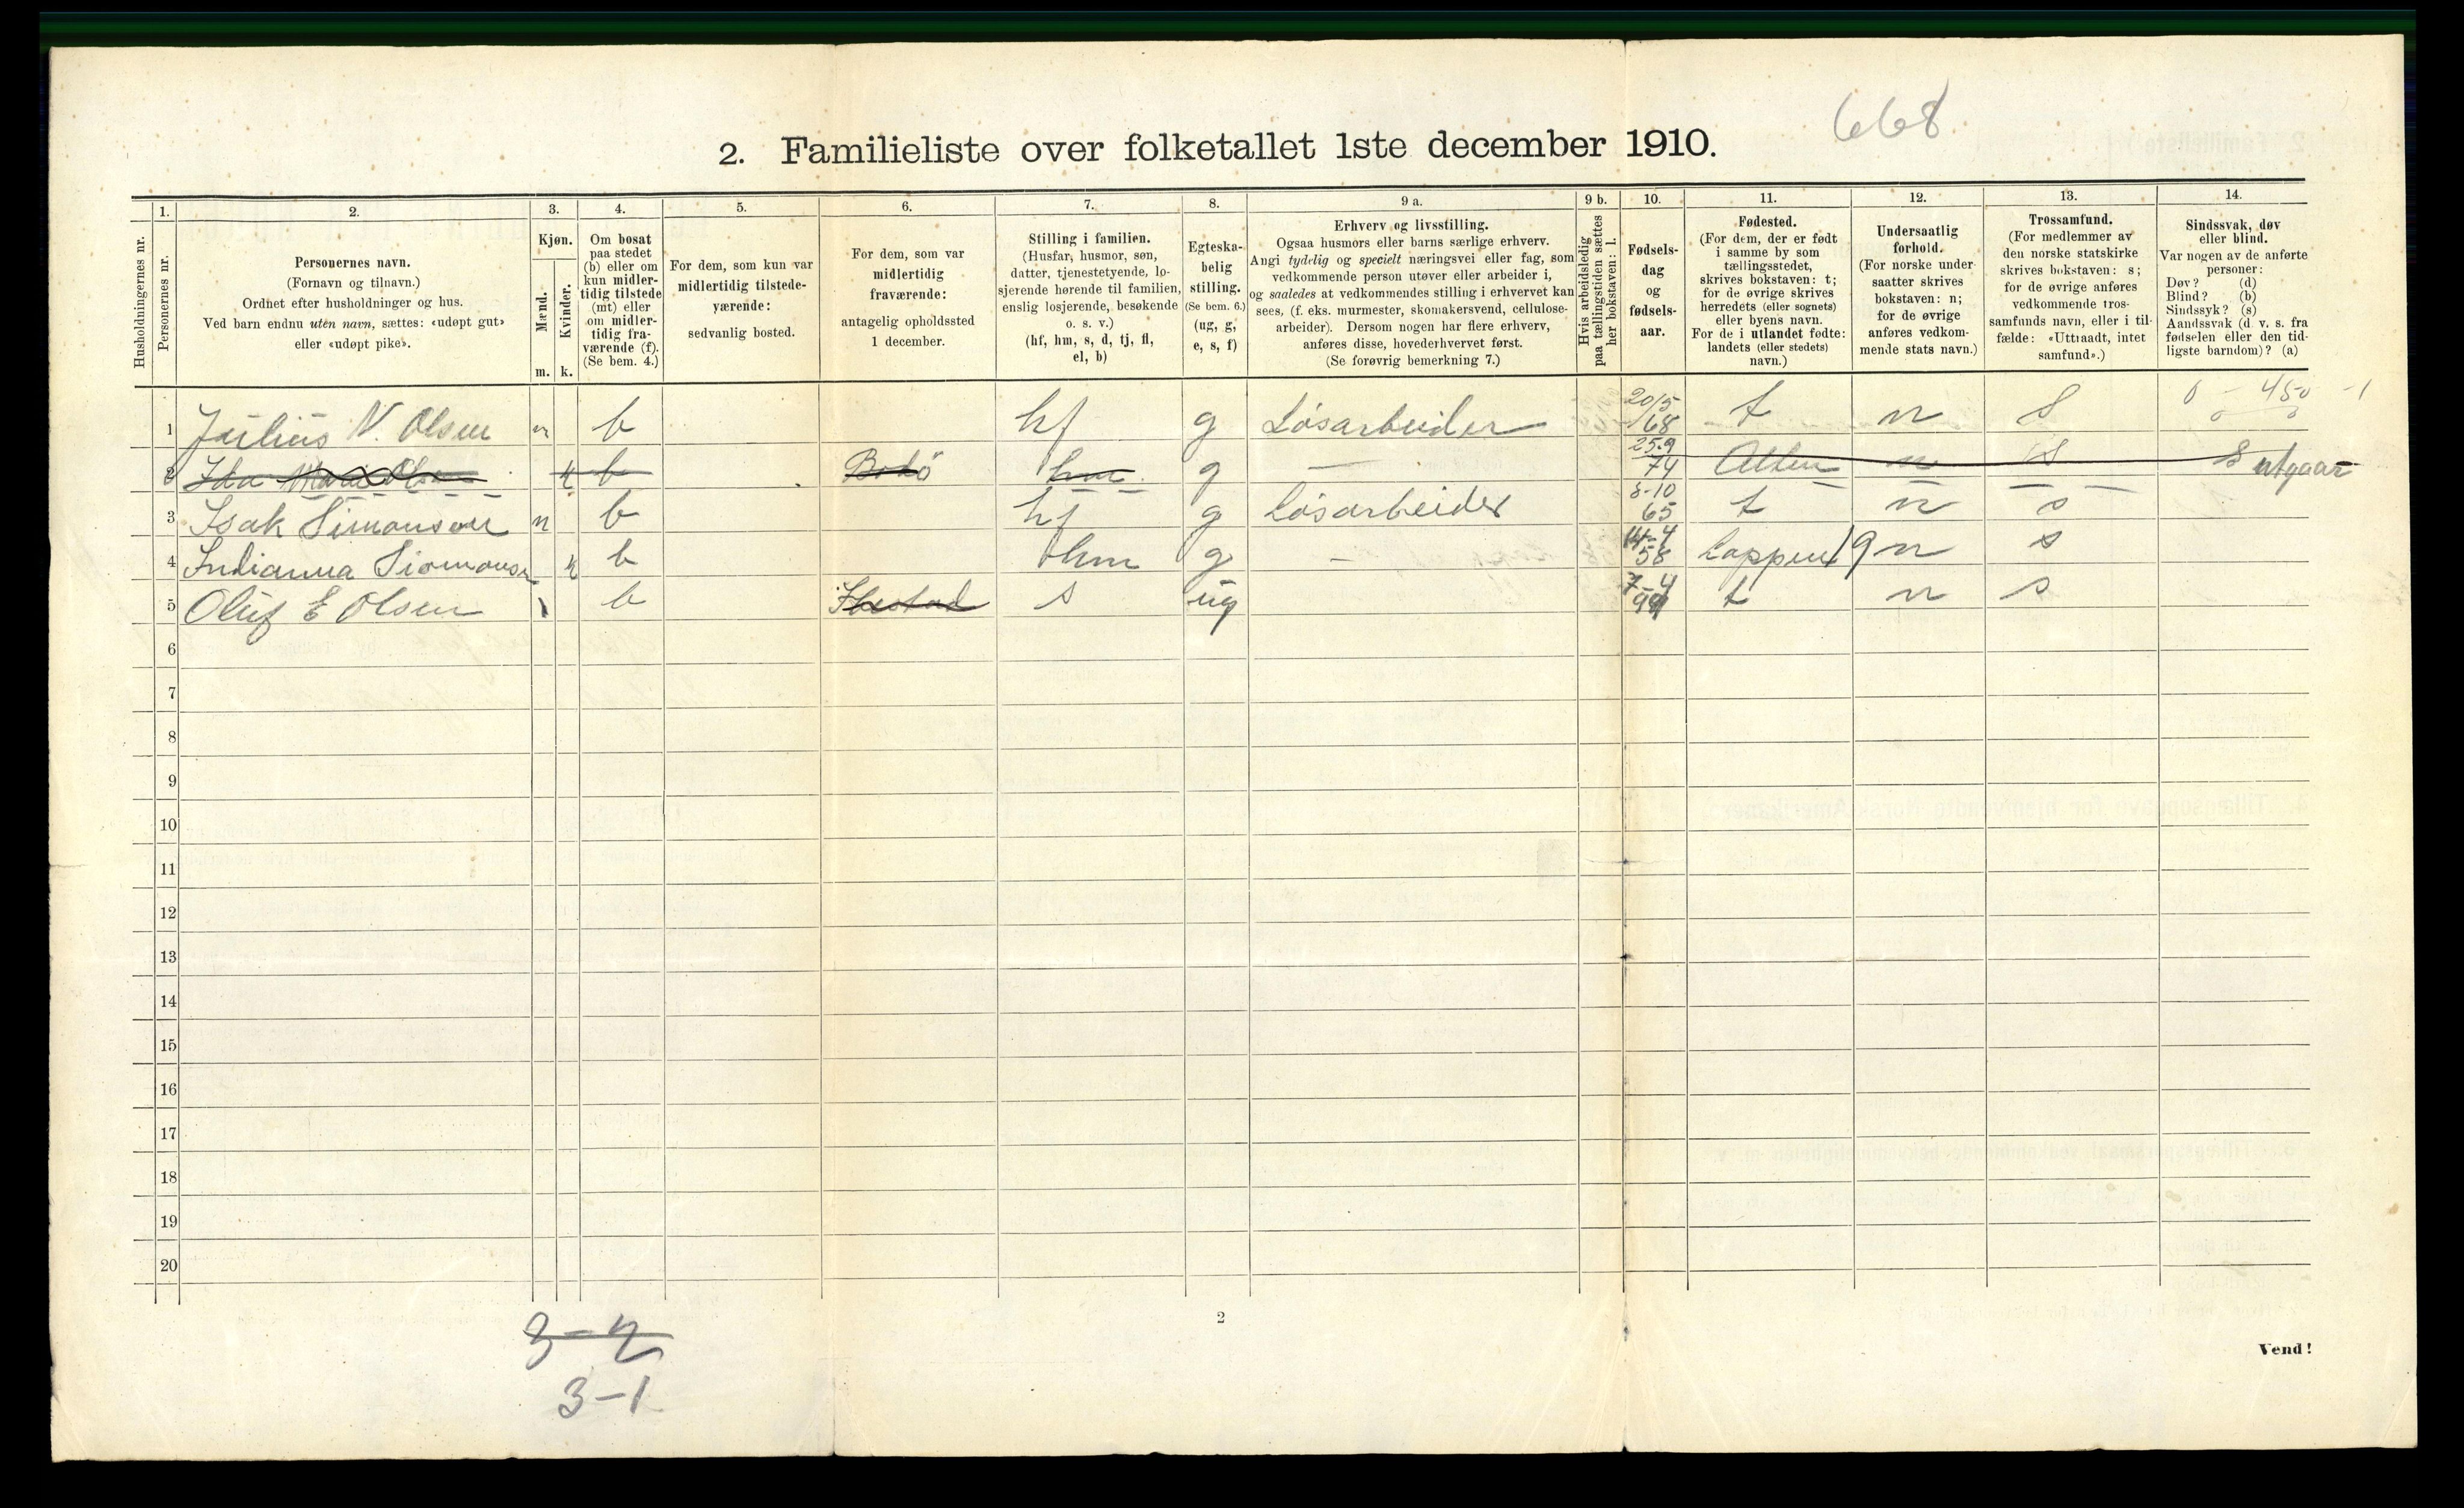 668
2. Familieliste over folketallet 1ste december 1910.
Husholdningernes nr.
1.
Personernes nr.
2.
Personernes navn.
(Fornavn og tilnavn.)
Ordnet efter husholdninger og hus.
Ved barn endnu uten navn, sættes: «udøpt gut»
eller «udøpt pike».
3.
Kjøn.
Mænd.
Kvinder.
m. k.
4.
Om bosat
paa stedet
(b) eller om
kun midler-
tidig tilstede
(mt) eller
om midler-
tidig fra-
værende (f).
(Se bem. 4.)
5.
For dem, som kun var
midlertidig tilstede-
værende:
sedvanlig bosted.
6.
For dem, som var
midlertidig
fraværende:
antagelig opholdssted
1 december.
7.
Stilling i familien.
(Husfar, husmor, søn,
datter, tjenestetyende, lo-
sjerende hørende til familien,
enslig losjerende, besøkende
o. s. v.)
(hf, hm, s, d, tj, fl,
el, b)
8.
Egteska-
belig
stilling.
(Se bem. 6.)
(ug, g,
e, s, f)
9 a.
Erhverv og livsstilling.
Ogsaa husmors eller barns særlige erhverv.
Angi tydelig og specielt næringsvei eller fag, som
vedkommende person utøver eller arbeider i,
og saaledes at vedkommendes stilling i erhvervet kan
sees, (f. eks. murmester, skomakersvend, cellulose-
arbeider). Dersom nogen har flere erhverv,
anføres disse, hovederhvervet først.
(Se forøvrig bemerkning 7.)
9 b.
Hvis arbeidsledig
paa tællingstiden sættes
her bokstaven: l.
10.
Fødsels-
dag
og
fødsels-
aar.
11.
Fødested.
(For dem, der er født
i samme by som
tællingsstedet,
skrives bokstaven: t;
for de øvrige skrives
herredets (eller sognets)
eller byens navn.
For de i utlandet fødte:
landets (eller stedets)
navn.)
12.
Undersaatlig
forhold.
(For norske under-
saatter skrives
bokstaven: n;
for de øvrige
anføres vedkom-
mende stats navn.)
13.
Trossamfund.
(For medlemmer av
den norske statskirke
skrives bokstaven: s;
for de øvrige anføres
vedkommende tros-
samfunds navn, eller i til-
fælde: «Uttraadt, intet
samfund».)
14.
Sindssvak, døv
eller blind.
Var nogen av de anførte
personer:
Døv? (d)
Blind? (b)
Sindssyk? (s)
Aandssvak (d. v. s. fra
fødselen eller den tid-
ligste barndom)? (a)
0 - 450 -1
0 0
1 Julius N. Olsen m b hf g Løsarbeider 20/5 68 t n S
2 Ida Marie Olsen k b Bodö hm g — 25-9 74 Alten n S S utgaar
3 Isak Simonsen m b hf g Løsarbeider 8-10 65 t n s
4 Indianna Simonsen k b hm g — 14-4 58 Loppen 19 n s
5 Oluf E Olsen b Ibestad s ug 7-4 t n s
6
7
8
9
10
11
12
13
14
15
16
17
18
19
20
3-2
3-1
2
Vend!